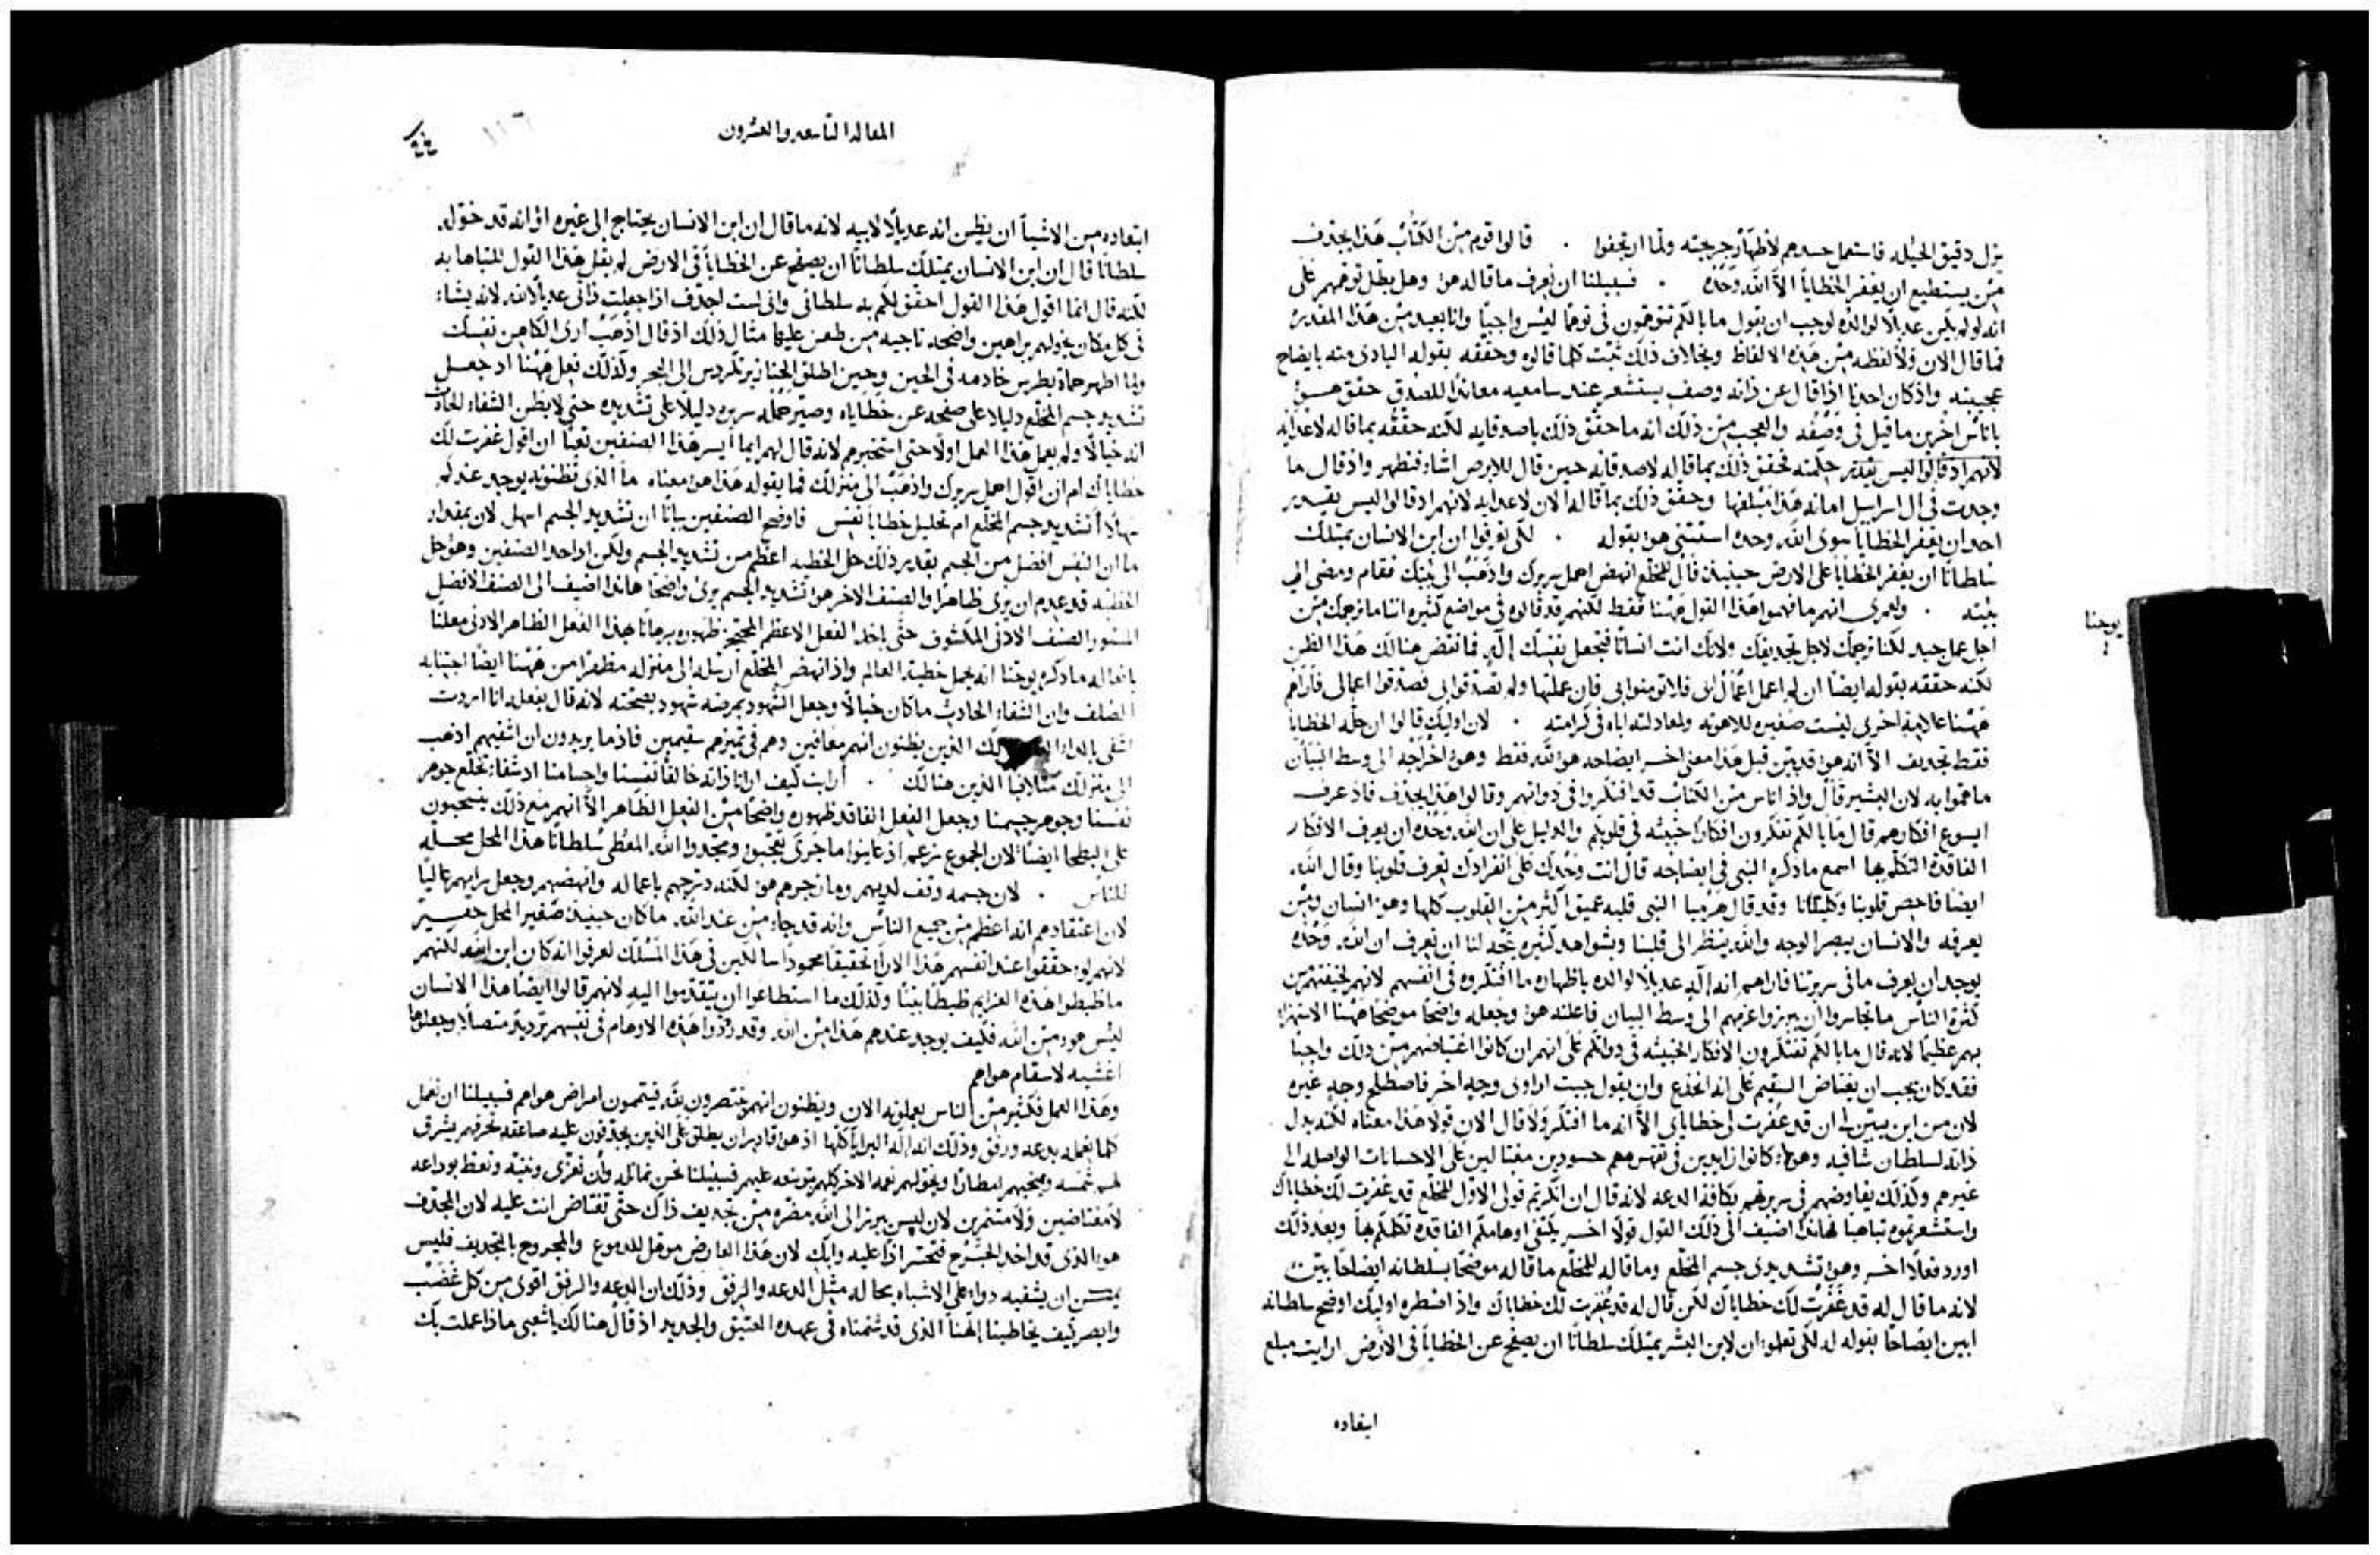 يزل دقيق الحيله فاستعمل حسدهم لاظهار جريحته ولما ان تجفوا . قالوا قوم من الكتاب هذا يجدف
من يستطيع ان يغفر الخطايا الا الله وحده . فسبيلنا ان نعرف ما قاله هو وهل بطل توهمهم على
انه لو لم يكن عديلا لوالده لوجب ان يقول ما بالكم تتوهمون في توهما ليس واجبا وانا بعيد من هذا المقدر
فما قال الان ولا لفظه من هذه الالفاظ وبخلاف ذلك ثبت كلما قالوه وحققه بقوله البادى منه بايضاح
عجيبته واذ كان احدنا اذا قال عن ذاته وصف يستشعر عند سامعيه معاندا للصدق حقق هو
باناس اخرين ما قيل في وصفه والعجب من ذلك انه ما حقق ذلك باصدقايه لكنه حققه بما قاله لاعدايه
لانهم اذ قالوا ليس يقدر فحقق ذلك بما قاله لاصدقايه حين قال للابرص اشاء فتطهر واذ قال ما
وجدت في ال اسراييل امانه هذا مبلغها وحقق ذلك بما قاله الان لاعدايه لانهم اذ قالوا ليس يقدر
احد ان يغفر الخطايا سوى الله وحده استثنى هو بقوله . لكى تعرفوا ان ابن الانسان يمتلك
سلطانا ان يغفر الخطايا على الارض حينيذ قال للمخلع انهض احمل سريرك واذهب الى بيتك فقام ومضى الى
بيته . ولعمرى انهم ما فهموا هذا القول ههنا فقط لكنهم قد قالوه في مواضع كثيره اننا ما نرجمك من
اجل عمل جيد لكنا نرجمك لاجل تجديفك ولانك انت انسانا فتجعل نفسك إله فما نقض هنالك هذا الظن
لكنه حققه بقوله ايضا ان لم اعمل اعمال ابى فلا تومنوا بى فان عملتها ولم تصدقوا بى فصدقوا اعمالى فاراهم
ههنا علامه اخرى ليست صغيره للاهوته ولمعادلته اباه في كرامته . لان اوليك قالوا ان حل الخطايا
فقط تجديف الا انه هو قد بين قبل هذا معنى اخر ايضاحه هو لله فقط وهو اخراجه الى وسط البيان
ما هموا به لان البشير قال واذ اناس من الكتاب قد افتكروا في ذواتهم وقالوا هذا يجدف فاذ عرف
ايسوع افكارهم قال ما بالكم تفتكرون افكارا خبيثه في قلوبكم والدليل على ان الله وحده ان يعرف الافكار
الفاقدة التكلم بها اسمع ما ذكره النبى في ايضاحه قال انت وحدك على انفرادك تعرف قلوبنا وقال الله
ايضا فاحص قلوبنا وكليتانا وقد قال هرميا النبى قلبه عميق اكثر من القلوب كلها وهو انسان ومن
يعرفه والانسان يبصر الوجه والله ينظر الى قلبنا وشواهد كثيره تتجه لنا ان نعرف ان الله وحده
يوجد ان يعرف ما في سريرتنا فاراهم انه إله عديلا لوالده باظهاره ما افتكروه في انفسهم لانهم لخيفتهم من
كثرة الناس ما تجاسروا ان يبرزوا عزمهم الى وسط البيان فاعلنه هو وجعله واضحا موضحا ههنا الاستهزاء
بهم عظيما لانه قال ما بالكم تفتكرون الافكار الخبيثه في ذواتكم على انهم ان كانوا اغتياضهم من ذلك واجبا
فقد كان يجب ان يغتاض السقيم على انه انخدع وان يقول جيت اداوى وجه اخر فاصطلح وجه غيره
لان من اين يبين لى ان قد غفرت لى خطاياى الا انه ما افتكر ولا قال الان قولا هذا معناه لكنه بذل
ذاته لسلطان شافيه وهولاء كانوا زايدين في تقسمهم حسودين مغتالين على الاحسانات الواصله الى
غيرهم ولذلك يفاوضهم في سريرتهم بكافة الدعه لانه قال ان انكرتم قولى الاول للمخلع قد غفرت لك خطاياك
واستشعرتموه تباهيا لهانذا اضيف الى ذلك القول قولا اخر يكشف اوهامكم الفاقده تكلمكم بها وبعد ذلك
اورد فعلا اخر وهو تشديدى جسم المخلع وما قاله للمخلع ما قاله موضحا بسلطانه ايضاحا بين
لانه ما قال له قد غفرت لك خطاياك لكن قال له قد غفرت لك خطاياك واذ اضطره اوليك اوضح سلطانه
ابين ايضاحا بقوله له لكى تعلموا ان لابن البشر يمتلك سلطانا ان يصفح عن الخطايا في الارض ارايت مبلغ
ابتعاده
يوحنا
المقاله التاسعه والعشرون
١١٦
ابتعاده من الاشيا ان يظن انه عديلا لابيه لانه ما قال ان ابن الانسان يحتاج الى غيره او انه قد خوله
سلطانا قال ان ابن الانسان يمتلك سلطانا ان يصفح عن الخطايا في الارض لم يقل هذا القول للتباها به
لكنه قال انما اقول هذا القول احقق لكم به سلطانى وانى لست اجدف اذا جعلت ذاتى عديلا لله لانه يشاء
في كل مكان يخولهم براهين واضحه ناجيه من طعن عليها مثال ذلك اذ قال اذهب ارى الكاهن نفسك
ولما اظهر حماة بطرس خادمه في الحين وحين اطلق الخنازير تكردس الى البحر وكذلك فعل ههنا اذ جعل
تشديد جسم المخلع دليلا على صفحه عن خطاياه وصير حمله سريره دليلا على تشديده حتى لا يظن الشفاء الحادث
انه خيالا ولم يعمل هذا العمل اولا حتى استخبرهم لانه قال لهم ايما ايسر هذا الصنفين تعبا ان اقول غفرت لك
خطاياك ام ان اقول احمل سريرك واذهب الى منزلك فما يقوله هذا هو معناه ما الذى تظنونه يوجد عندكم
سهلا أتشديد جسم المخلع ام تحليل خطايا نفس فاوضح الصنفين بيانا ان تشديد الجسم اسهل لان بمقدار
ما ان النفس افضل من الجسم بقدير ذلك حل الخطيه اعظم من تشديد الجسم ولكن اذ احد الصنفين وهو حل
الخطيه قد عدم ان يرى ظاهرا والصنف الاخر هو تشديد الجسم يرى واضحا هانذا اضيف الى الصنف الافضل
المستور الصنف الادنى المكشوف حتى ياخذ الفعل الاعظم المحتجز ظهوره برهانا بهذا الفعل الظاهر الادنى معلنا
بافعاله ما ذكره يوحنا انه يحمل خطية العالم واذ انهض المخلع ارسله الى منزله مظهرا من ههنا ايضا اجتنابه
الصلف وان الشفاء الحادث ما كان خيالا وجعل الشهود بمرضه شهود بصحته لانه قال بفعله انا اردت
اشفى الذين يظنون انهم معافين وهم في تميزهم سقيمين فاذ ما يريدون ان اشفيهم اذهب
الى منزلك متلافيا الذين هنالك . أرايت كيف ارانا ذاته خالقا نفسنا واجسامنا اذ شفاء تخلع جوهر
نفسنا وجوهر جسمنا وجعل الفعل الفاقد ظهوره واضحا من الفعل الظاهر الا انهم مع ذلك ينسحبون
على البطحا ايضا لان الجموع نزعم اذ عاينوا ما جرى تعجبوا ومجدوا الله المعطى سلطانا هذا المحل محله
للناس . لان جسمه وقف لديهم وما زجرهم هو لكنه درجهم باعماله وانهضهم وجعل رايهم عاليا
لان اعتقادهم انه اعظم من جميع الناس وانه قد جاء من عند الله ما كان حينيذ صغير المحل حقير
لانهم لو حققوا عند انفسهم هذا الارآ تحقيقا محمودا سالكين في هذا المسلك لعرفوا انه كان ابن الله لكنهم
ما ظبطوا هذه العزايم ظبطا بينا ولذلك ما استطاعوا ان يتقدموا اليه لانهم قالوا ايضا هذا الانسان
ليس هو من الله فكيف يوجد عندهم هذا من الله وقد رددوا هذه الاوهام في نفسهم ترديد متصلا وجعلوها
اغشيه لاسقام هواهم
وهذا العمل فكثير من الناس يعملونه الان ويظنون انهم منتصرون لله فيتممون امراض هواهم فسبيلنا ان نعمل
كلما نعمله بدعه ورفق وذلك انه اله البرايا كلها اذ هو قادر ان يطلق على الذين يجدفون عليه صاعقه تحرقهم يشرق
لهم شمسه ويمنحهم امطارا ويخولهم نعمه الاخر كلهم بتوسعه عليهم فسبيلنا نحن نماثله وان نعزى وننبه ونعظ بوداعه
لا مغتاضين ولا متنمرين لان ليس يبرز الى الله مضره من تجديف ذاك حتى تغتاض انت عليه لان المجدف
هو الذى قد اخذ الجرح فتحسر اذا عليه وابك لان هذا العارض موهل للدموع والمجروح بالتجديف فليس
يمكن ان يشفيه دواء على الاشباه بحاله مثل الدعه والرفق وذلك ان الدعه والرفق اقوى من كل غضب
وابصر كيف يخاطبنا إلهنا الذى قد شتمناه في عهده العتيق والجديد اذ قال هنالك يا شعبى ماذا عملت بك